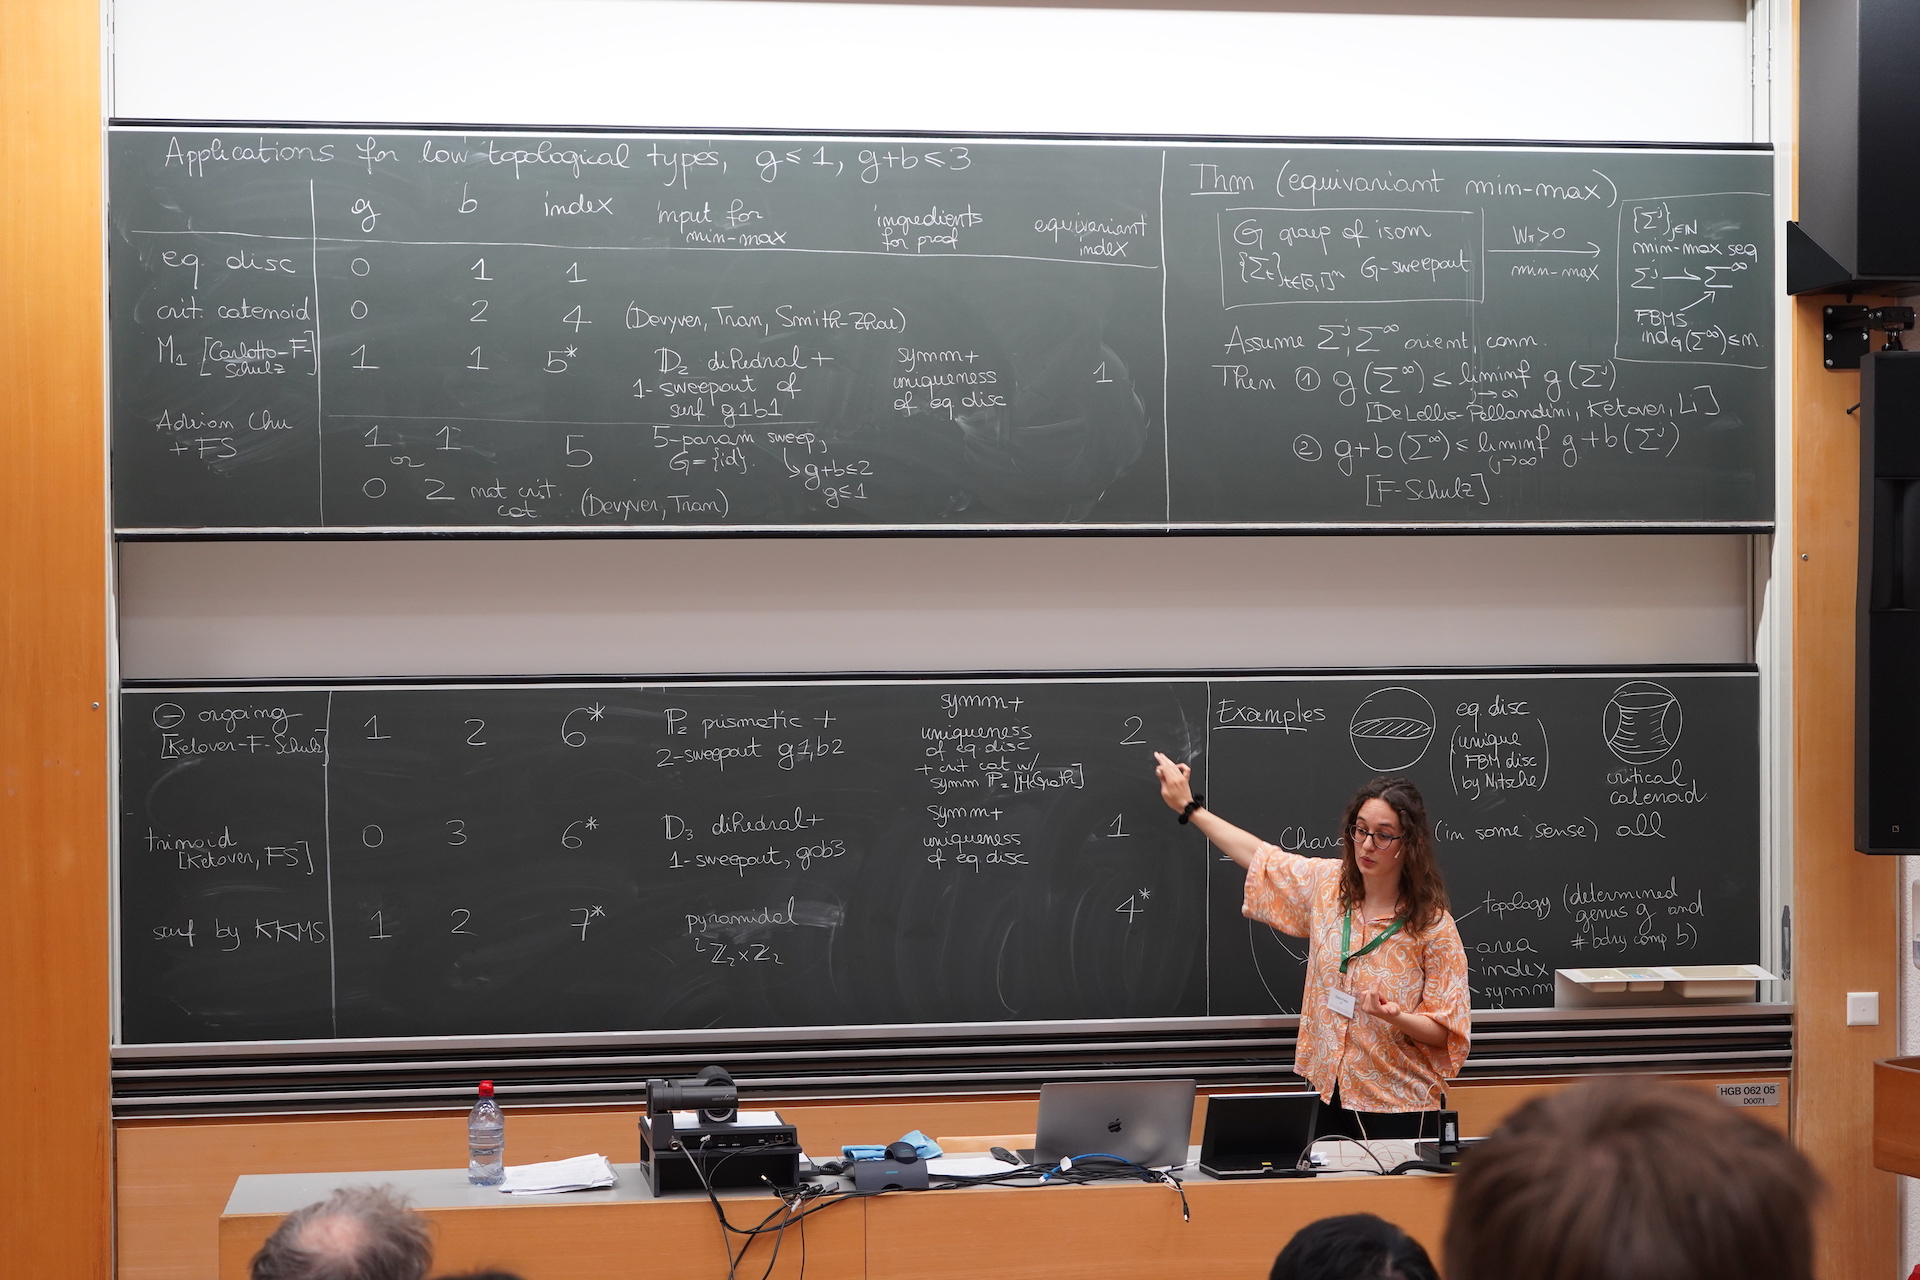 Applications for low topological types, g ≤ 1, g+b ≤ 3
g b index input for min-max ingredients for proof equivariant index
eq. disc 0 1 1
crit. catenoid 0 2 4 (Devyver, Tran, Smith-Zhou)
M₁ [Carlotto-F-Schulz] 1 1 5* 𝔻₂ dihedral + symm+ 1
1-sweepout of uniqueness
surf g1b1 of eq. disc
Adrian Chu + FS 1 1 5 5-param sweep,
or G={id}. ↳ g+b≤2
g≤1
0 2 not crit. cat. (Devyver, Tran)
Thm (equivariant min-max)
G group of isom
{Σₜ}ₜ∈[0,1]ⁿ G-sweepout
W_π>0
min-max
{Σʲ}ⱼ∈ℕ
min-max seq
Σʲ → Σ^∞
FBMS
ind_G(Σ^∞) ≤ n.
Assume Σʲ, Σ^∞ orient, conn.
Then ① g(Σ^∞) ≤ liminf j→∞ g(Σʲ)
[De Lellis-Pellandini, Ketover, Li]
② g+b(Σ^∞) ≤ liminf j→∞ g+b(Σʲ)
[F-Schulz].
⊖ ongoing 1 2 6* ℙ₂ prismatic + symm+ 2
[Ketover-F-Schulz] 2-sweepout g1,b2 uniqueness
of eq. disc
+ crit cat w/
symm ℙ₂ [McGrath]
trinoid 0 3 6* 𝔻₃ dihedral + symm+ 1
[Ketover, FS] 1-sweepout, g0b3 uniqueness
of eq. disc
surf by KKMS 1 2 7* pyramidal 4*
ℤ₂×ℤ₂
Examples
eq. disc
(unique
FBM disc
by Nitsche)
critical
catenoid
(in some sense) all
topology (determined
genus g and
#bdry comp b)
- area
index
symm
HGB 062 05
D007.1